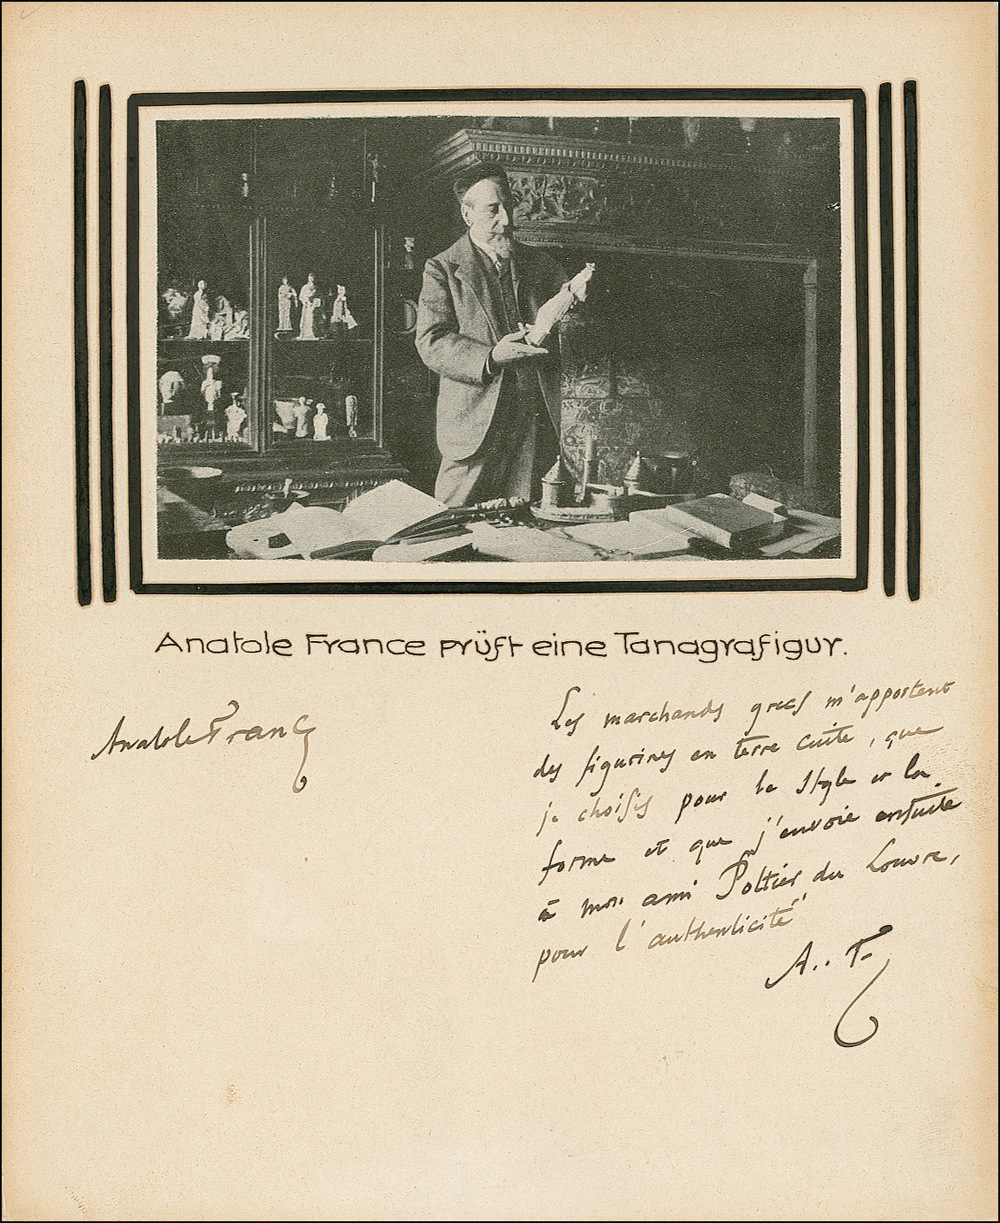 Anatole France prüft eine Tanagrafigur.
Anatole France
Les marchands grecs m'apportent
des figurines en terre cuite, que
je choisis pour le style et la
forme et que j'envoie ensuite
à mon ami Pottier du Louvre,
pour l'authenticité"
A.. F.